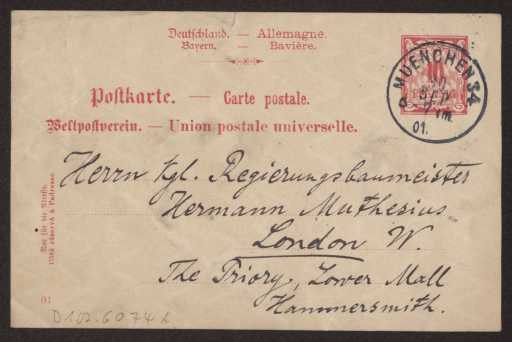 Deutschland. — Allemagne.
Bayern. — Bavière.
Postkarte. — Carte postale.
Weltpostverein. — Union postale universelle.
MUENCHEN 34
SEP
01.
10
Herrn kgl. Regierungsbaumeister
Hermann Muthesius
London W.
The Priory, Lower Mall
Hammersmith.
Nur für die Adresse.
Côté réservé à l'adresse.
01